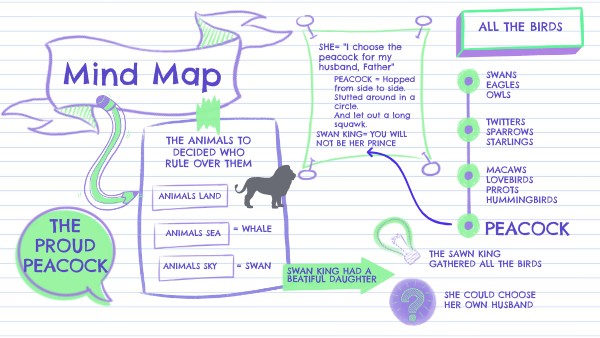 Mind Map
THE ANIMALS TO
DECIDED WHO
RULE OVER THEM
ANIMALS LAND
ANIMALS SEA
= WHALE
ANIMALS SKY
= SWAN
THE
PROUD
PEACOCK
SWAN KING HAD A
BEATIFUL DAUGHTER
SHE= "I choose the
peacock for my
husband, Father"
PEACOCK = Hopped
from side to side.
Stutted around in a
circle.
And let out a long
squawk.
SWAN KING= YOU WILL
NOT BE HER PRINCE
ALL THE BIRDS
SWANS
EAGLES
OWLS
TWITTERS
SPARROWS
STARLINGS
MACAWS
LOVEBIRDS
PRROTS
HUMMINGBIRDS
PEACOCK
THE SAWN KING
GATHERED ALL THE BIRDS
?
SHE COULD CHOOSE
HER OWN HUSBAND